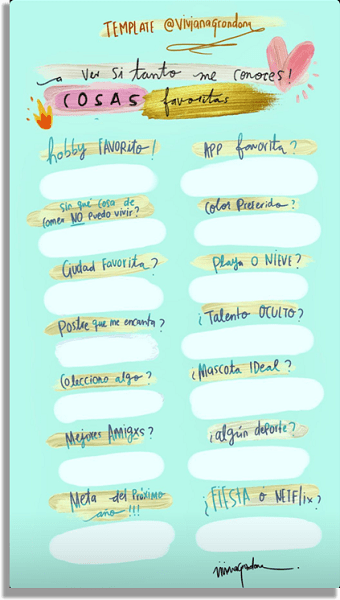 TEMPLATE @vivianagrondona
a ver si tanto me conoces!
COSAS favoritas
hobby FAVORITO!
Sin que cosa de
comer NO puedo vivir?
Ciudad Favorita?
Postre que me encanta?
Colecciono algo?
Mejores Amigxs?
Meta del próximo
año!!!
APP favorita?
Color Preferido?
Playa O NIEVE?
¿Talento OCULTO?
¿Mascota IDeal?
¿algún deporte?
¿FIESTA ó NETFlix?